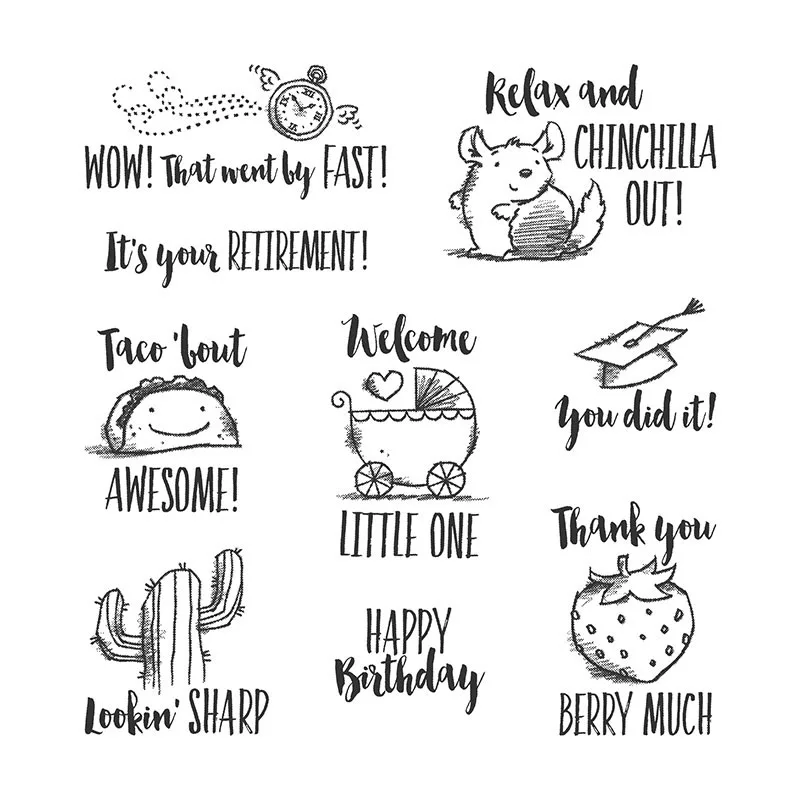 WOW! That went by FAST!
It's your RETIREMENT!
Relax and
CHINCHILLA
OUT!
Taco 'bout
AWESOME!
Welcome
LITTLE ONE
You did it!
Lookin' SHARP
HAPPY
Birthday
Thank you
BERRY MUCH